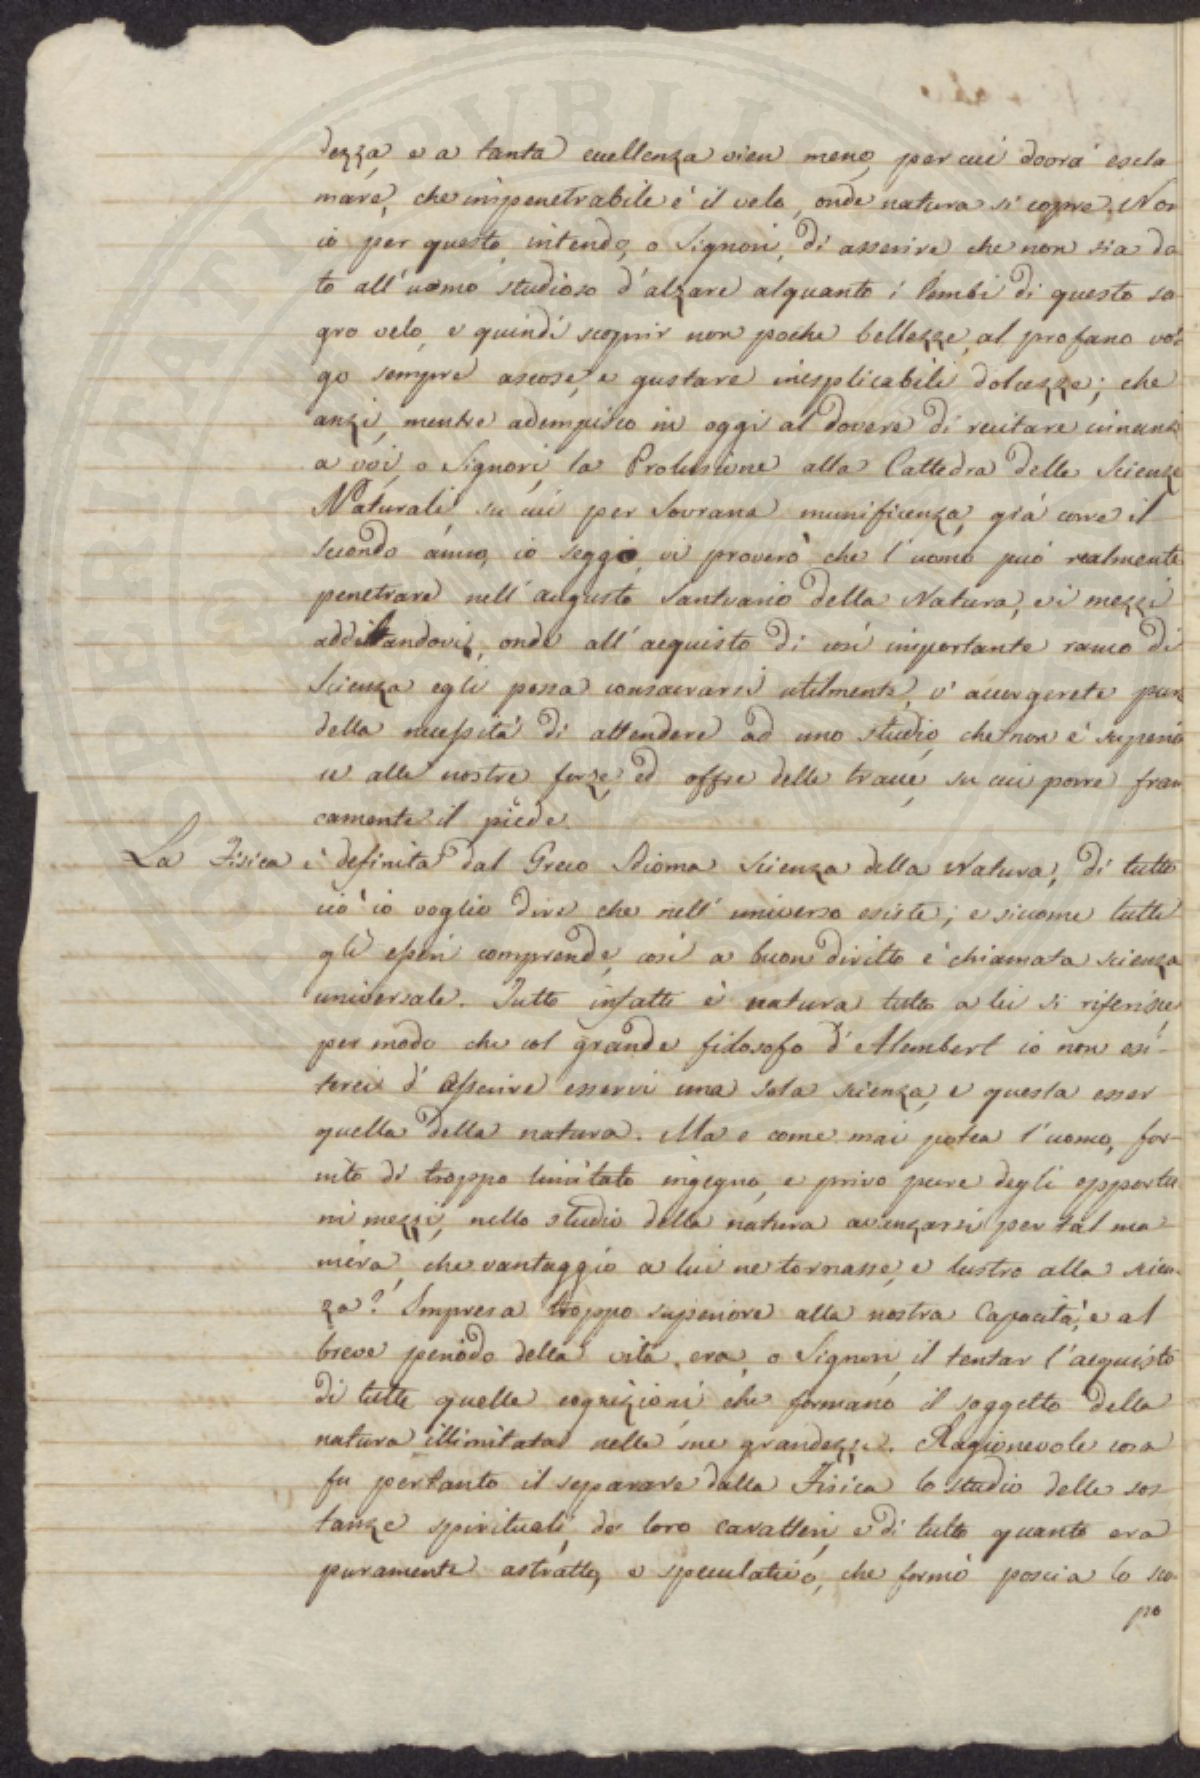 dezza, e a tanta eccellenza vien meno, per cui dovrà escla
mare, che impenetrabile è il velo, onde natura si copre. Non
io per questo intendo, o Signori, di asserire che non sia da
to all'uomo studioso d'alzare alquanto i lembi di questo sa
gro velo, e quindi scoprir non poche bellezze al profano vol
go sempre ascose, e gustare inesplicabili dolcezze; che
anzi, mentre adempisco in oggi al dovere di recitare innanzi
a voi, o Signori, la Prolusione alla Cattedra delle Scienze
Naturali su cui per Sovrana munificenza, già corre il
secondo anno, io seggio, vi proverò che l'uomo può realmente
penetrare nell'augusto Santuario della Natura, e i mezzi
additandovi, onde all'acquisto di così importante ramo di
Scienza egli possa consacrarsi utilmente, v'accorgerete pur
della necessità di attendere ad uno studio, che non è superio
re alle nostre forze, ed offre delle tracce, su cui porre fran
camente il piede.
La Fisica è definita dal Greco Idioma Scienza della Natura, di tutto
ciò io voglio dire che nell'universo esiste; e siccome tutti
gli esseri comprende, così a buon diritto è chiamata scienza
universale. Tutto infatti è natura tutto a lei si riferisce,
per modo che col grande filosofo d'Alembert io non esi-
terei d'asserire esservi una sola scienza, e questa esser
quella della natura. Ma e come mai potea l'uomo, for-
nito di troppo limitato ingegno, e privo pure degli opportu
ni mezzi, nello studio della natura avanzarsi per tal ma
niera, che vantaggio a lui ne tornasse, e lustro alla scien-
za? Impresa troppo superiore alla nostra Capacità, e al
breve periodo della vita, era, o Signori, il tentar l'acquisto
di tutte quelle cognizioni che formano il soggetto della
natura illimitata nelle sue grandezze. Ragionevole cosa
fu pertanto il separare dalla Fisica lo studio delle sos-
tanze spirituali, de' loro caratteri, e di tutto quanto era
puramente astratto, e speculativo, che formò poscia lo sco-
po